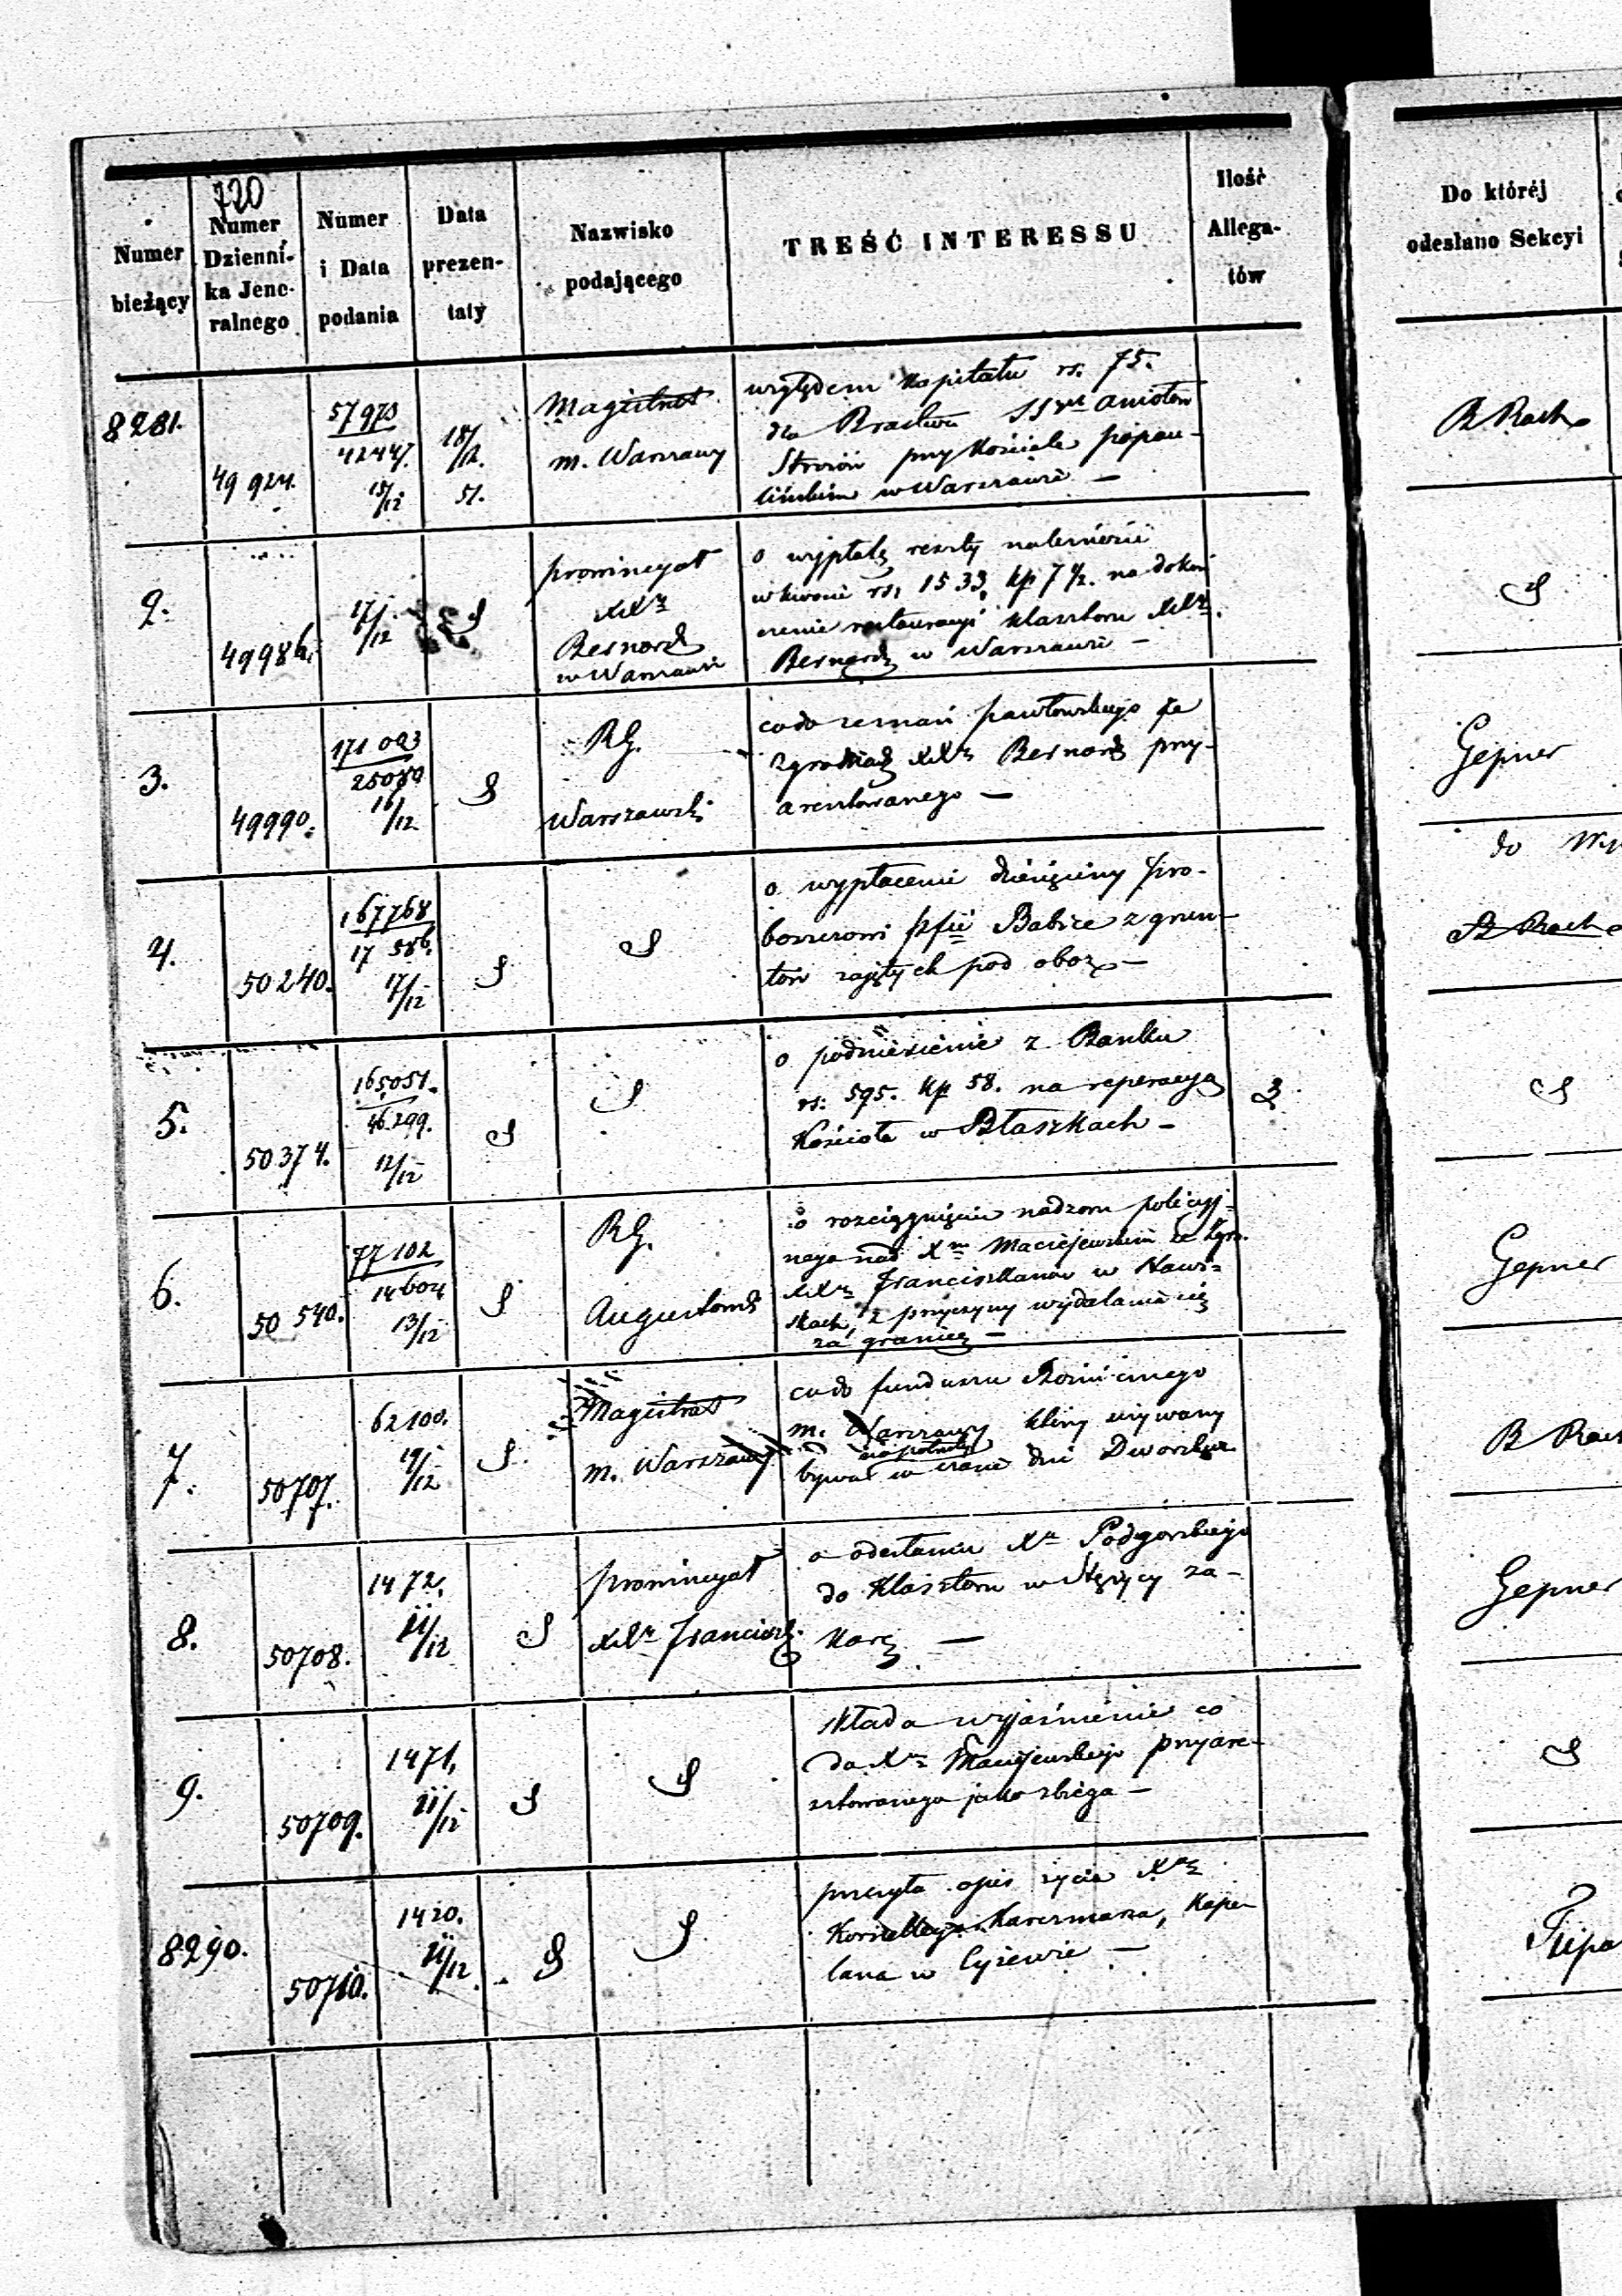 720
Numer
bieżący
Numer
Dzienni-
ka Jene-
ralnego
Numer
i Data
podania
Data
prezen-
taty
Nazwisko
podającego
TREŚĆ INTERESSU
Ilość
Allega-
tów
Do któréj
odesłano Sekcyi
8281.
49 924.
57970
42447.
15/12
18/12.
51.
Magistrat
m. Warszawy
względem Kapitału rs. 75.
dla Bractwa SS Aniołów
Stróżów przy Kościele popau-
lińskim w Warszawie —
B Rach
2.
49986.
17/12
S
prowincyał
XX
Bernard
w Warszawie
o wypłatę reszty należności
w kwocie rs. 1533 kp 7 1/2. na dokoń
czenie restauracyi klasztoru XX.
Bernard w Warszawie —
S
3.
49990.
171 003
25080
16/12
S
RG.
Warszawski
co do zeznań pawłowskiego ze
Zgromadz XX Bernard przy-
aresztowanego —
Gepner
4.
50240.
167768
17 586.
17/12
S
S
o wypłacenie dziesięciny pro-
boszczowi pfii Babice z grun-
tów zajętych pod oboz —
do
B Rach
5.
50374.
165051.
46299.
12/12
S
S
o podniesienie z Banku
rs: 595. kp 58. na reperacyą
Kościoła w Błaszkach —
3
S
6.
50 540.
77102
14604
13/12
S
RG.
Augustows
o rozciągnięcie nadzoru policyj-
nego nad Xm Maciejewskim ze Zgr.
XX Franciszkanów w
skach, z przyczyny wydalania się
za granicę —
Gepner
7.
50707.
62100.
19/12
S.
Magistrat
m. Warszawy
co do funduszu
m. Warszawy który używany
bywał w czasie dni Dworskich
B Rach
8.
50708.
1472.
21/12
S
prowincyał
XX Francisz.
o odesłanie X Podgorskiego
do Klasztoru w Stężycy za
Karę —
Gepner
9.
50709.
1471.
21/12
S
S
składa wyjaśnienie co
do X Maciejewskiego przyare-
sztowanego jako zbiega —
S
8290.
50710.
1420.
21/12
S
S
przesyła opis życia X
Karczmarza, Kape-
lana w Czyżewie —